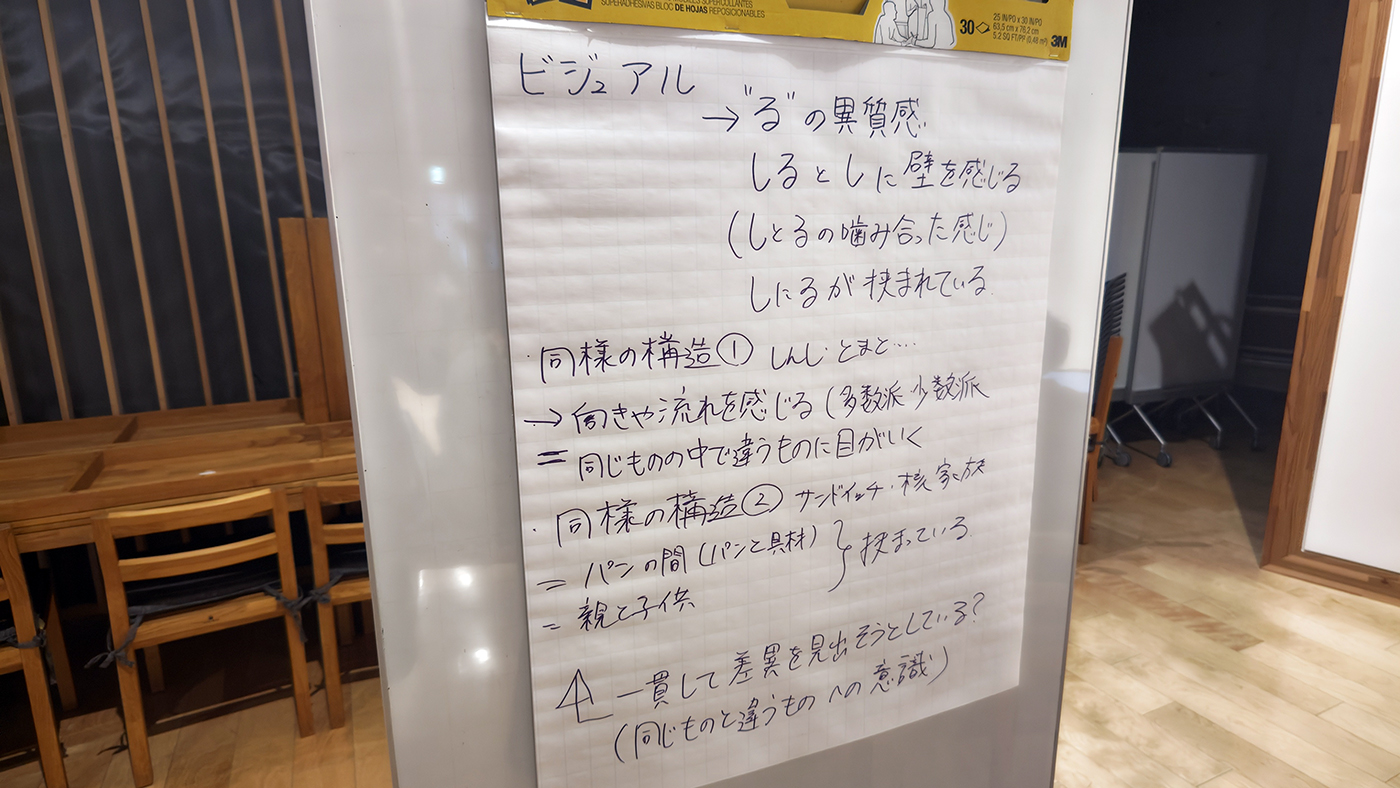 SUPERADHESIVAS BLOC DE HOJAS REPOSICIONABLES
30
25 IN/PO x 30 IN/PO
63,5 cm x 76,2 cm
5.2 SQ FT/PP (0,48 m²)
3M
ビジュアル
→"る"の異質感
しるとしに壁を感じる
(しとるの噛み合った感じ)
しにるが挟まれている
・同様の構造① しんし とまと…
→向きや流れを感じる(多数派 少数派
=同じものの中で違うものに目がいく
・同様の構造② サンドイッチ・核家族
=パンの間(パンと具材)}挟まっている
=親と子供
一貫して差異を見出そうとしている?
(同じものと違うものへの意識)